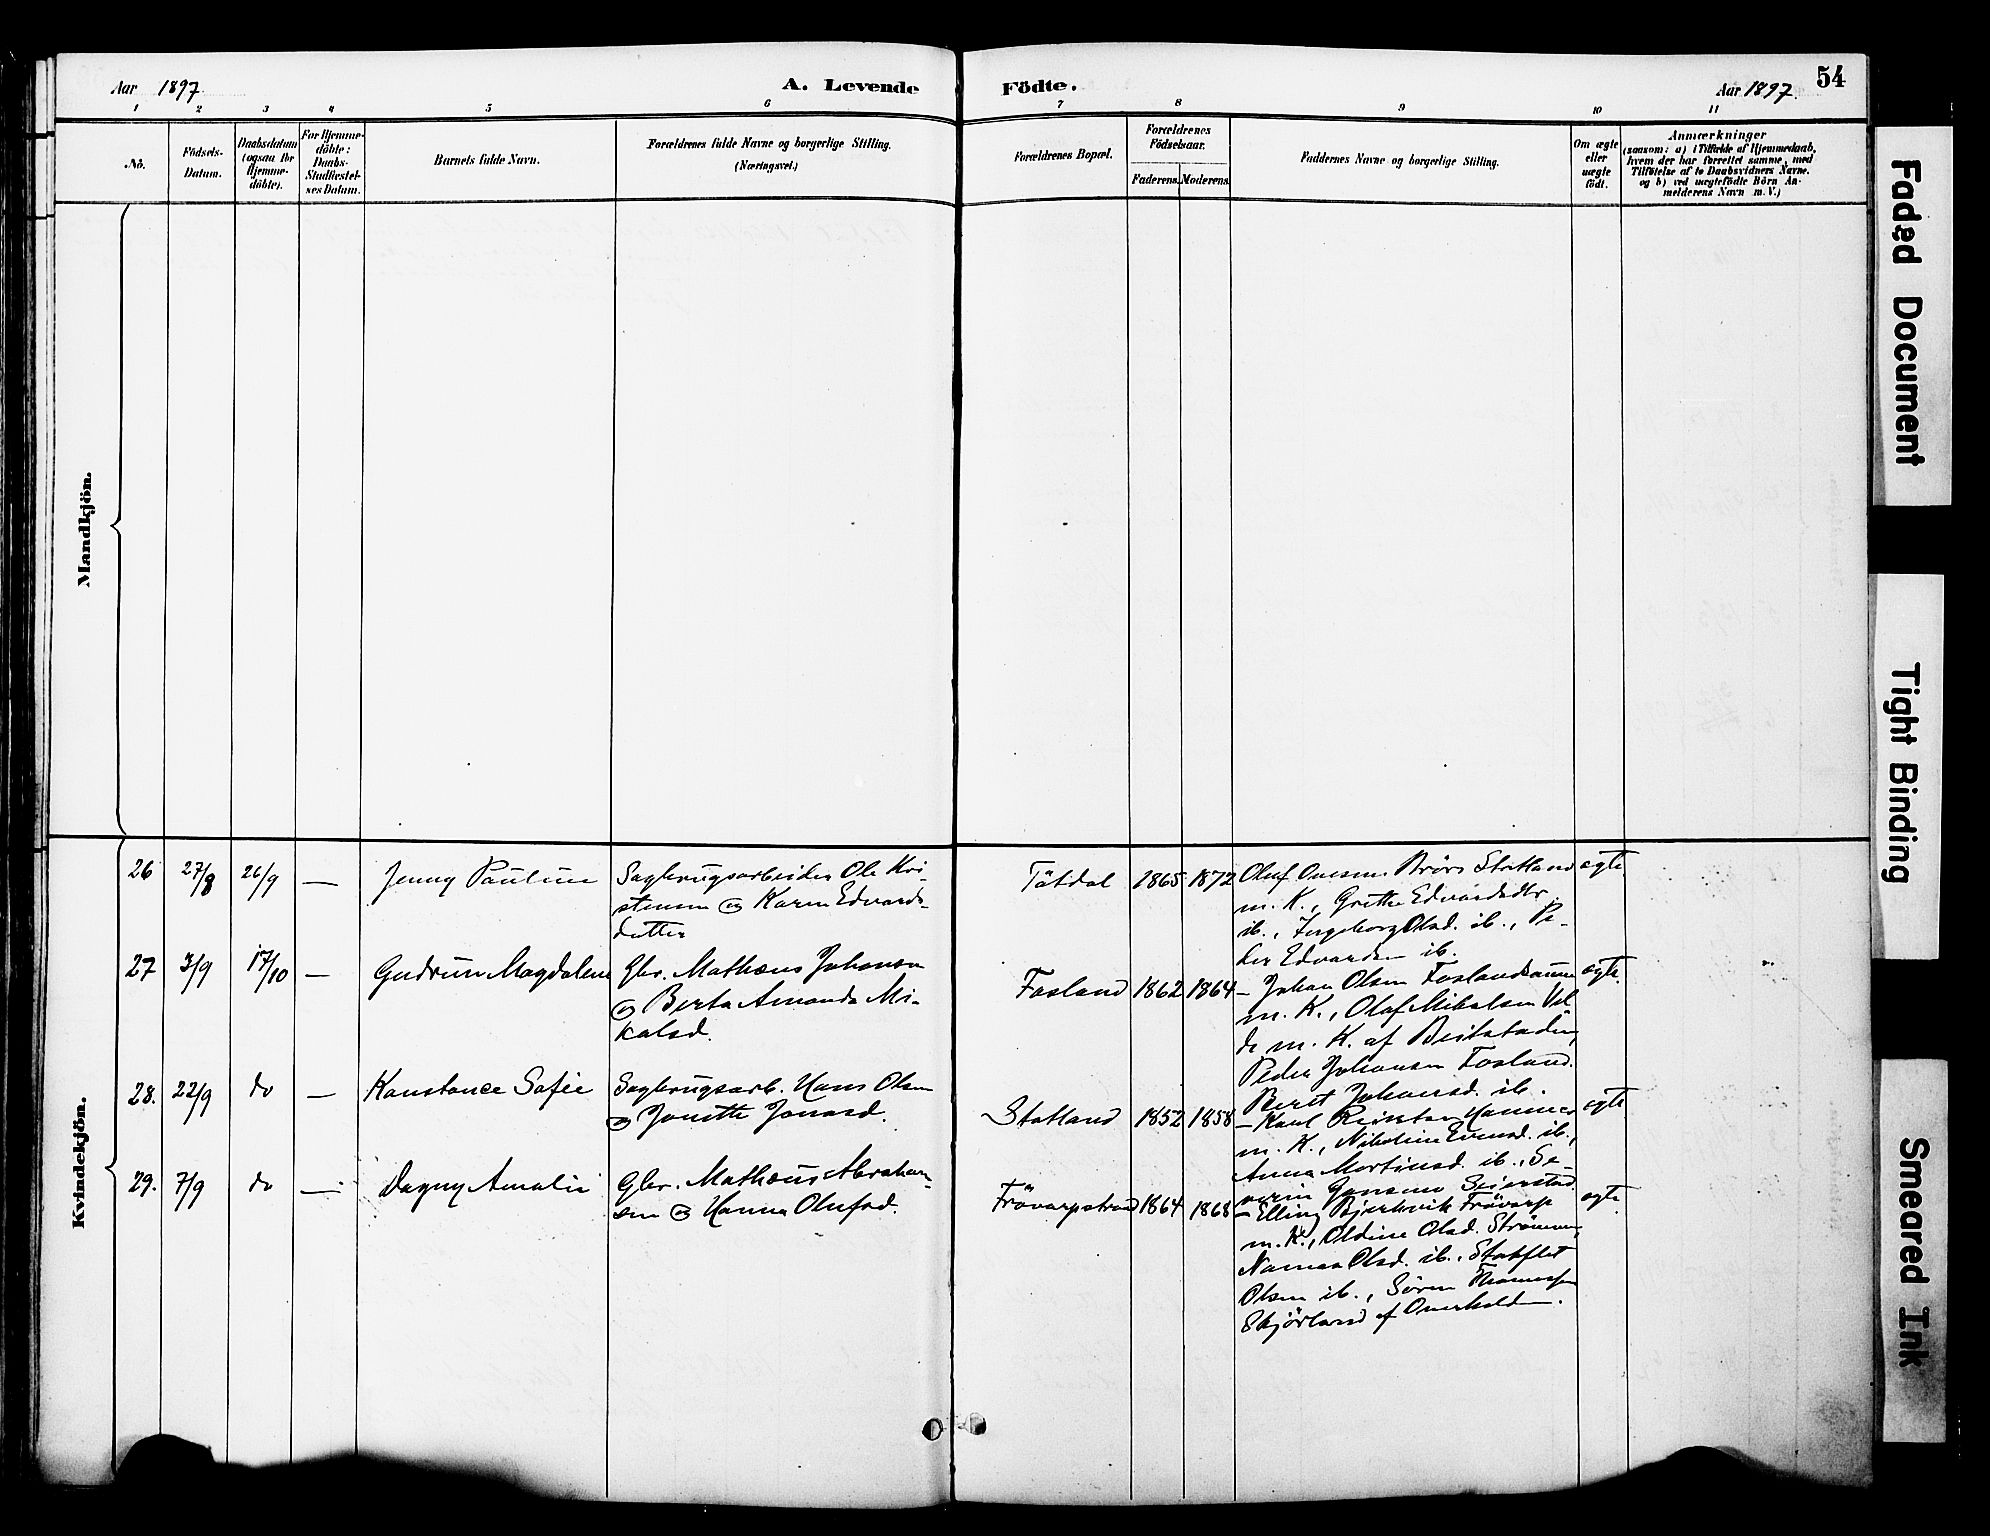 Aar 1897
A. Levende
Födte.
Aar 1897.
54
1 2 3 4 5 6 7 8 9 10 11
No.
Födsels-
Datum.
Daabsdatum
(ogsaa for
Hjemme-
döbte).
For Hjemme-
döbte:
Daabs-
Stadfæstel-
ses Datum.
Barnets fulde Navn.
Forældrenes fulde Navne og borgerlige Stilling.
(Næringsvei.)
Forældrenes Bopæl.
Forældrenes
Födselsaar.
Faderens.
Moderens.
Faddernes Navne og borgerlige Stilling.
Om ægte
eller
uægte
födt.
Anmærkninger
(saasom: a) i Tilfælde af Hjemmedaab,
hvem der har forrettet samme, med
Tilföielse af to Daabsvidners Navne,
og b) ved uægtefödte Börn An-
melderens Navn m. V.)
Mandkjön.
Kvindekjön.
26 27/8 26/9 — Jenny Pauline
Sagbrugsarbeider Ole Kri-
stensen og Karen Edvards-
datter
Tötdal 1865 1872
Oluf Ovesen Brörs Statland
m. K., Grethe Edvardsdtr.
ib., Ingeborg Olsd. ib., Pe-
der Edvardsen ib.
egte
27 3/9 17/10 — Gudrun Magdalene
Gbr. Mathæus Johansen
og Berta Amanda Mi-
kalsd.
Fosland 1862 1864
— Johan Olsen Foslandsaune
m. K., Olaf Mikalsen Vel
de m. K. af Beitstaden,
Peder Johansen Fosland.
Beret Johansd. ib.
egte.
28. 22/9 do — Konstance Safie
Sagbrugsarb. Hans Olsen
og Jonette Jonasd.
Statland 1852 1858
— Karl Reinster Hammer
m. K., Nikoline Evensd. ib.,
Anna Martinsd. ib., Se-
verin Jensen Seierstad.
egte
29. 7/9 do — Dagny Amalie
Gbr. Mathæus Abraham-
sen og Hanna Olufsd.
Frövarpstrand 1864 1868
— Elling Bjerkvik Frövarp
m. K., Oldine Olsd. Strömmen,
Olsd. ib.,
Olsen ib., Sören Thomessen
Skjörland af Overhalden.
egte.
Faded Document
Tight Binding
Smeared Ink